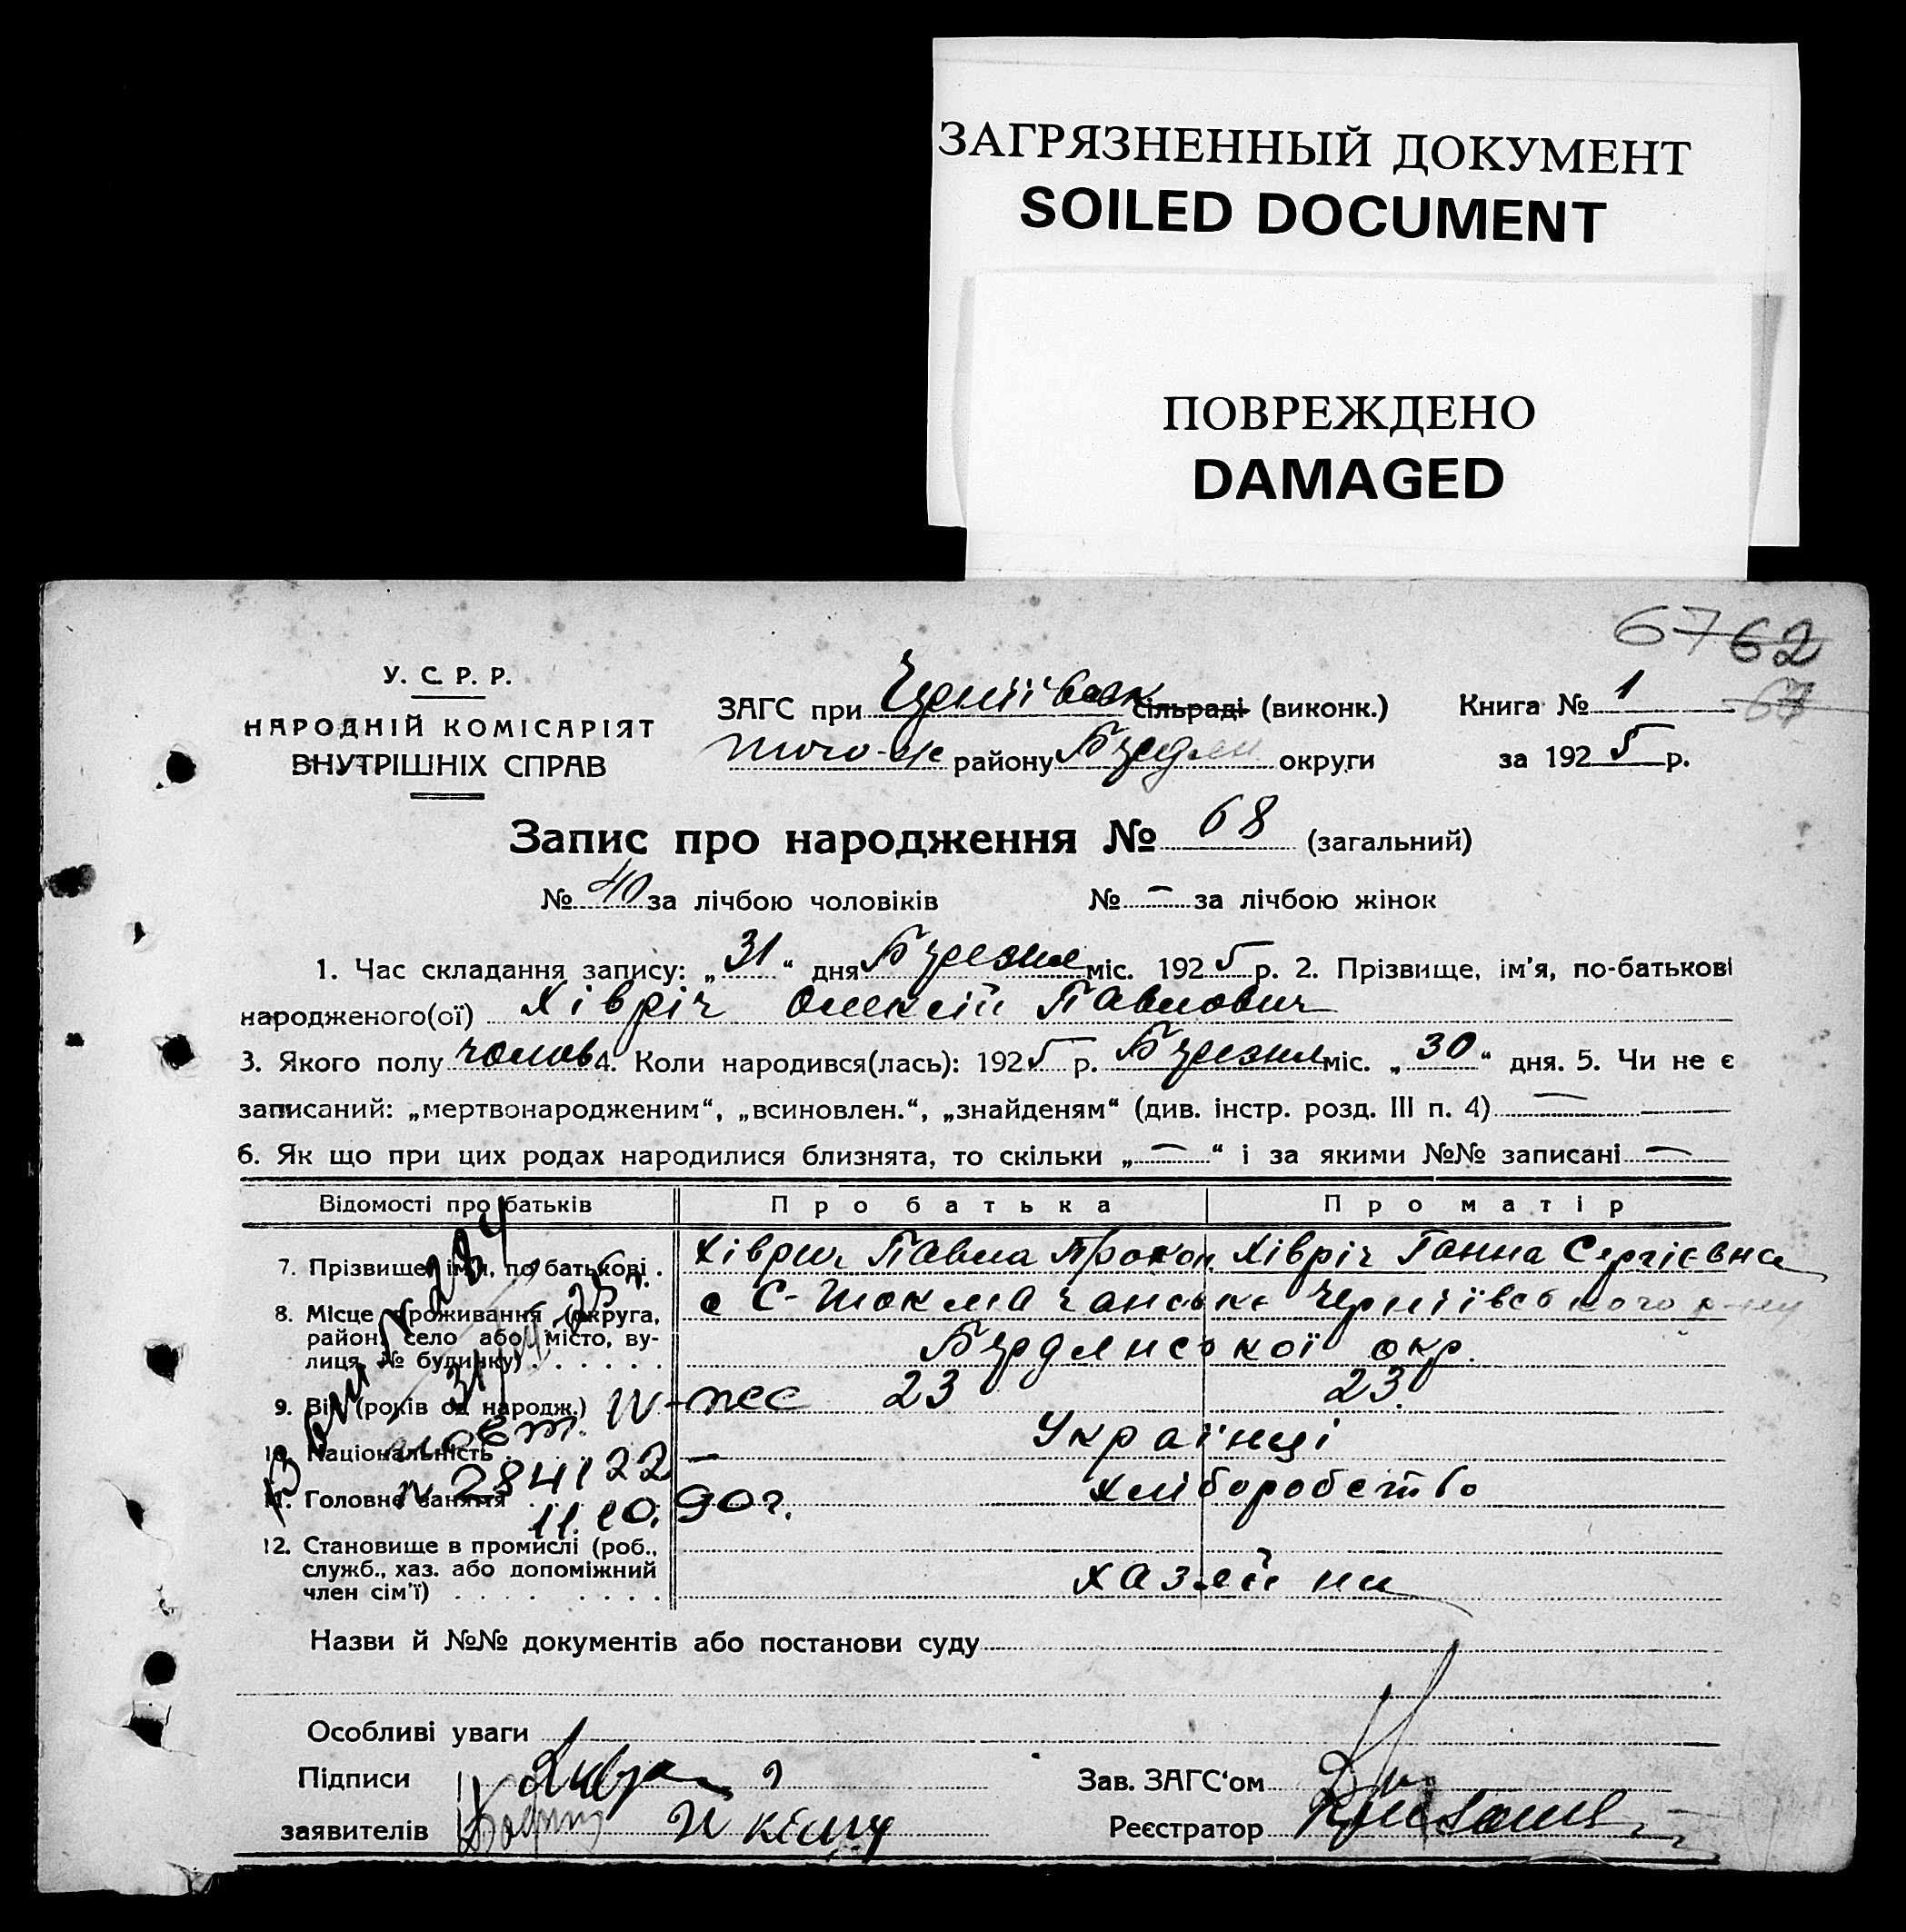 ЗАГРЯЗНЕННЫЙ ДОКУМЕНТ
SOILED DOCUMENT
ПОВРЕЖДЕНО
DAMAGED
67 62
67
У. С. Р. Р.
НАРОДНІЙ КОМІСАРІЯТ
ВНУТРІШНІХ СПРАВ
ЗАГС при сільраді (виконк.) Книга № 1
того-ж району округи за 1925 р.
Запис про народження № 68 (загальний)
№ 40 за лічбою чоловіків № — за лічбою жінок
1. Час складання запису: „31“ дня Березня міс. 1925 р. 2. Прізвище, ім'я, по-батькові
народженого(ої) Хівріч Олексій Павлович
3. Якого полу чолов 4. Коли народився(лась): 1925 р. Березня міс. „30“ дня. 5. Чи не є
записаний: „мертвонародженим“, „всиновлен.“, „знайденям“ (див. інстр. розд. III п. 4) —
6. Як що при цих родах народилися близнята, то скільки „—“ і за якими №№ записані —
Відомості про батьків Про батька Про матір
7. Прізвище, ім'я, по батькові . Хіврич Павла Прокоп. Хівріч Ганна Сергієвна
8. Місце проживання (округа, район, село або місто, вулиця, № будинку) . . . . . с С-Токмачанське Черніївського р-ну
Бердянської окр.
9. Вік (років од народж.) 23 23.
10. Національність . — Українці
11. Головне заняття хліборобство
12. Становище в промислі (роб.,
служб., хаз. або допоміжний
член сім'ї) . . . . . . . . хазяїни
N 284122
11.10.90г.
Назви й №№ документів або постанови суду
Особливі уваги
Підписи Зав. ЗАГС'ом
заявителів Реєстратор